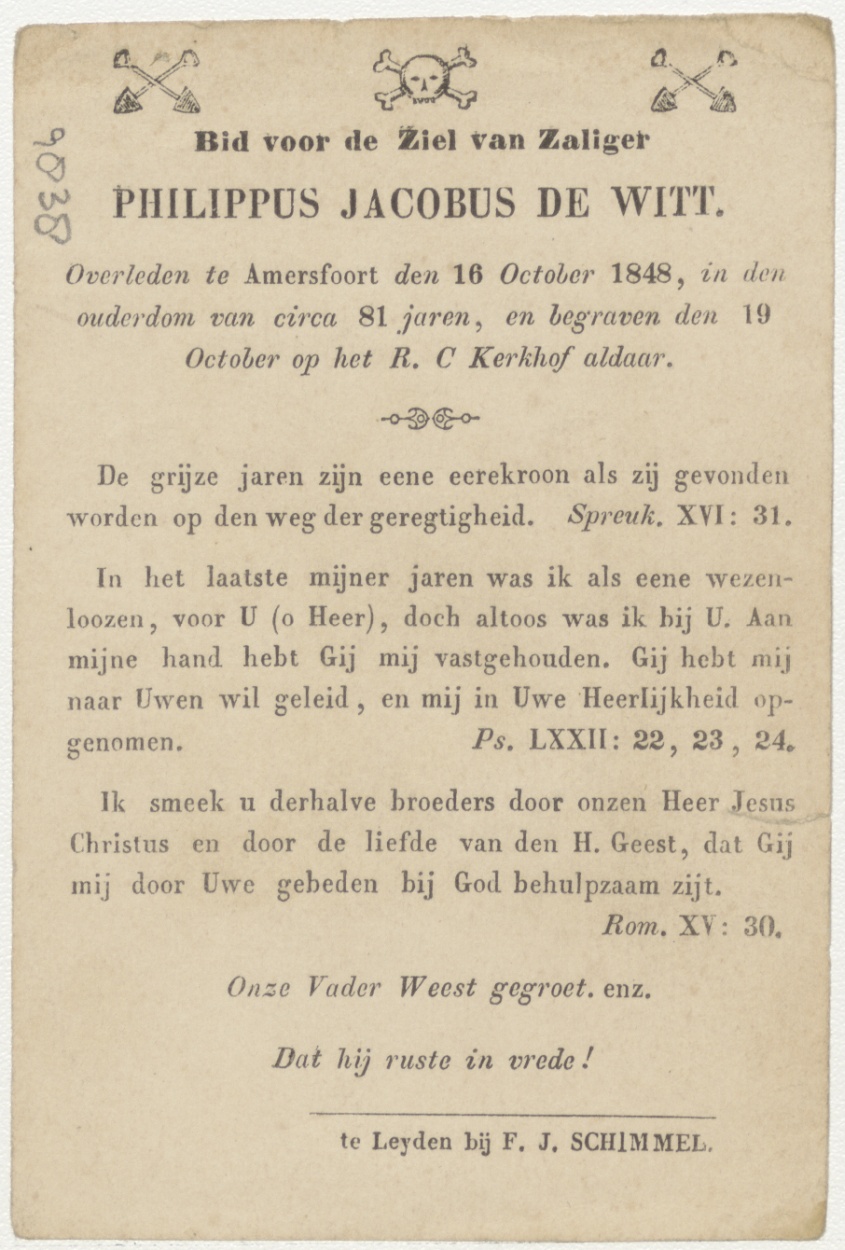 9038
Bid voor de Ziel van Zaliger
PHILIPPUS JACOBUS DE WITT.
Overleden te Amersfoort den 16 October 1848, in den
ouderdom van circa 81 jaren, en begraven den 19
October op het R. C Kerkhof aldaar.
De grijze jaren zijn eene eerekroon als zij gevonden
worden op den weg der geregtigheid. Spreuk. XVI: 31.
In het laatste mijner jaren was ik als eene wezen-
loozen, voor U (o Heer), doch altoos was ik bij U. Aan
mijne hand hebt Gij mij vastgehouden. Gij hebt mij
naar Uwen wil geleid, en mij in Uwe Heerlijkheid op-
genomen. Ps. LXXII: 22, 23, 24.
Ik smeek u derhalve broeders door onzen Heer Jesus
Christus en door de liefde van den H. Geest, dat Gij
mij door Uwe gebeden bij God behulpzaam zijt.
Rom. XV: 30.
Onze Vader Weest gegroet. enz.
Dat hij ruste in vrede!
te Leyden bij F. J. SCHIMMEL.